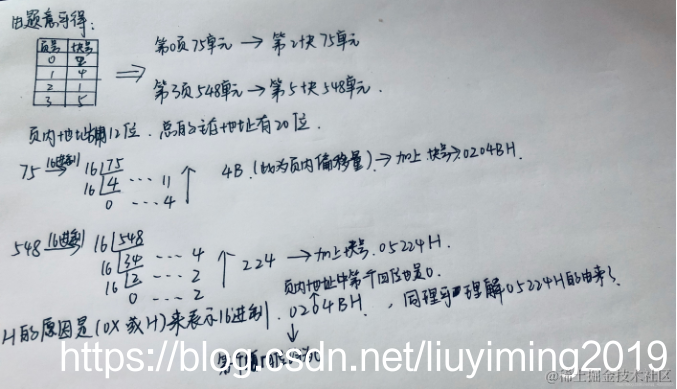 由题意可得:
页号 块号
0 2
1 4
2 1
3 5
⇒ 第0页75单元 → 第2块75单元
第3页548单元 → 第5块548单元.
页内地址 12位. 总的主存地址有20位.
75 16进制 16 75
16 4 ... 11
0 ... 4
4B (此为页内偏移量) → 加上块号 → 0204BH.
548 16进制 16 548
16 34 ... 4
16 2 ... 2
0 ... 2
224 → 加上块号. 05224H.
页内地址中第一个四位是0.
H的原因是(0X或H)来表示16进制. 0204BH. , 同理可理解05224H的由来了
https://blog.csdn.net/liuyiming2019
@稀土掘金技术社区